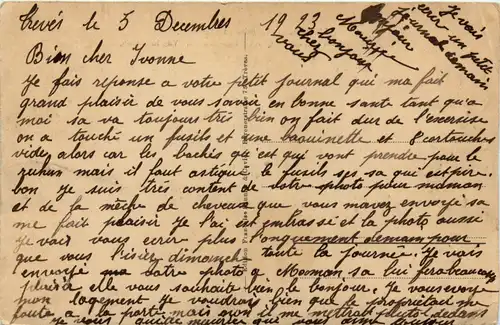 Trevés le 5 Decembres 1923
Je vais
ecrir un petit
journal demain
bonjour
chez
vous
Bien cher Ivonne
Je fais reponse a votre petit journal qui ma fait
grand plaisir de vous savoir en bonne sante tant qu'a
moi sa va toujours très bien on fait dur de l'exercise
on a touché un fusils et une baouinette et 8 cartouches
vide, alors car les bochés qu'est qui vont prendre pour le
mais il faut astiqué le fusils ses sa qui est pire.
bon Je suis très content de votre photo pour maman
et de la mèche de cheveux que vous mavez envoyé sa
me fait plaisir Je l'ai embrassé et la photo aussi
Je vais vous ecrir plus longuement demain pour
que vous l'isiez dimanche toute la journée. Je vais
envoyé votre photo a Moman sa lui fera beaucoup
plaisir elle vous souhaite bien le bonjour. Je vous envoye
mon logement Je voudrais bien que le propriétaire me
foute a la porte mais non il me mettrai pluto dedans
Je vous quitte que vous toujours